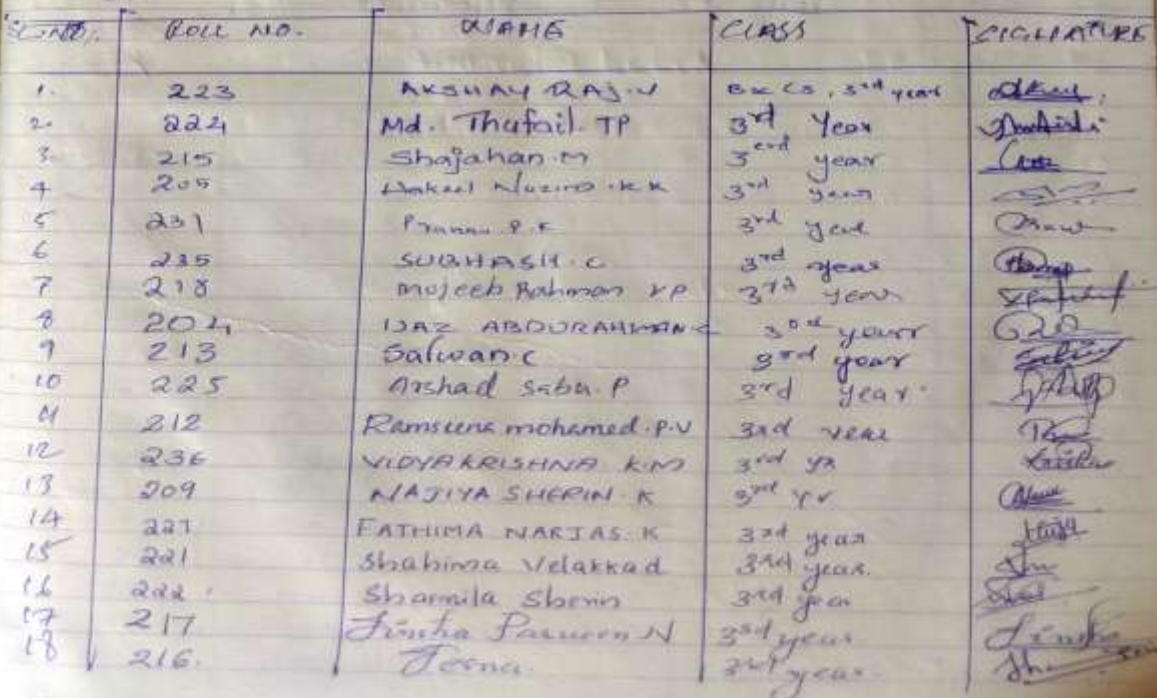 SL.NO. ROLL NO. NAME CLASS SIGNATURE
1. 223 AKSHAY RAJ.V BSc CS, 3rd year
2. 224 Md. Thufail. TP 3rd Year
3. 215 Shajahan.M 3rd year
4 205 K K 3rd year
5 231 Pranav P.K 3rd year
6 235 SUBHASH.C 3rd year
7 218 Mujeeb Rahman VP 3rd year
8 204 IJAZ ABDURAHMAN C 3rd yearr
9 213 Safwan.C 3rd year
10 225 Arshad Sabu.P 3rd year
11 212 mohamed.P.V 3rd year
12 236 VIDYAKRISHNA K.M 3rd yr
13 209 NAJIYA SHERIN.K 3rd yr
14 227 FATHIMA NARJAS.K 33d year
15 221 Shahima Velakkad 3rd year.
16 222. Sharmila Sherin 3rd year
17 217 N 3rd year
18 216. 3rd year.